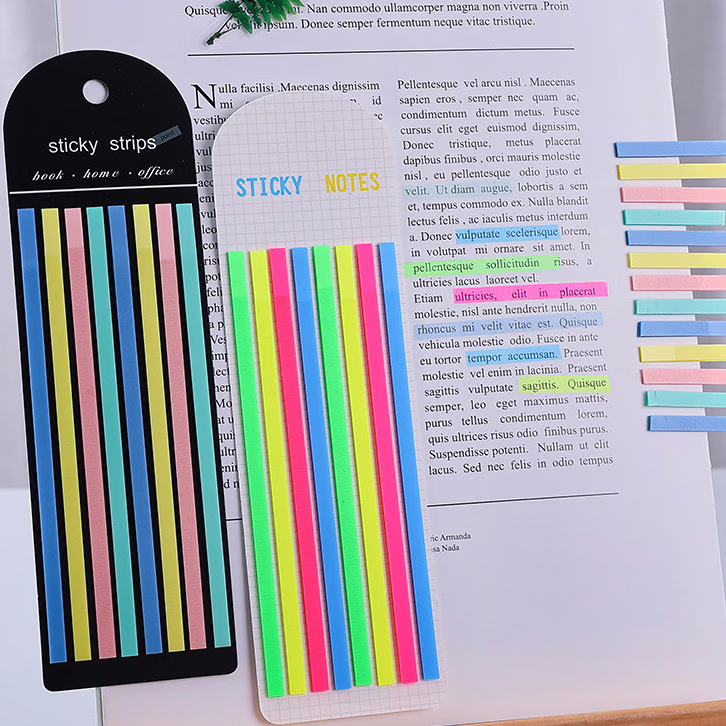 Quisque
. Nan commodo ullamcorper magna non viverra .Proin
vel ipsum. Donec semper fermentum neque vitae tristique.
sticky strips
point
book · home · office
STICKY NOTES
Nulla facilisi .Maecenas dignissim
mi
id
Pellentesque vel arcu nisl . Maecenas
sapien eros , semper nec quam ac,
condimentum dictum metus. Fusce
cursus elit eget euismod dignissim,
Donec tristique, metus placerat
dapibus finibus , orci mauris molestie
nisl , eu pellentesque odio justo et
velit. Ut diam augue, lobortis a sem
et, tempus commodo ex. Nulla blandit
lectus felis , ac iaculis metus interdum
a. Donec vulputate scelerisque lorem,
in volutpat mi ornare sit amet. In
pellentesque sollicitudin risus, a
ultricies lacus laoreet vel.
Etiam ultricies, elit in placerat
molestie, nisl ante hendrerit nulla, non
rhoncus mi velit vitae est. Quisque
vehicula molestie odio. Fusce in ante
eu tortor tempor accumsan. Praesent
molestie vel enim in lacinia. Praesent
sagittis vulputate sagittis. Quisque
semper, leo eget maximus mattis,
purus tellus condimentum lorem,
quis ultrices risus odio finibus purus.
Suspendisse potenti. Nullam ut elit
lacus. Sed nec felis in odio tempus
ric Armanda
sa Nada